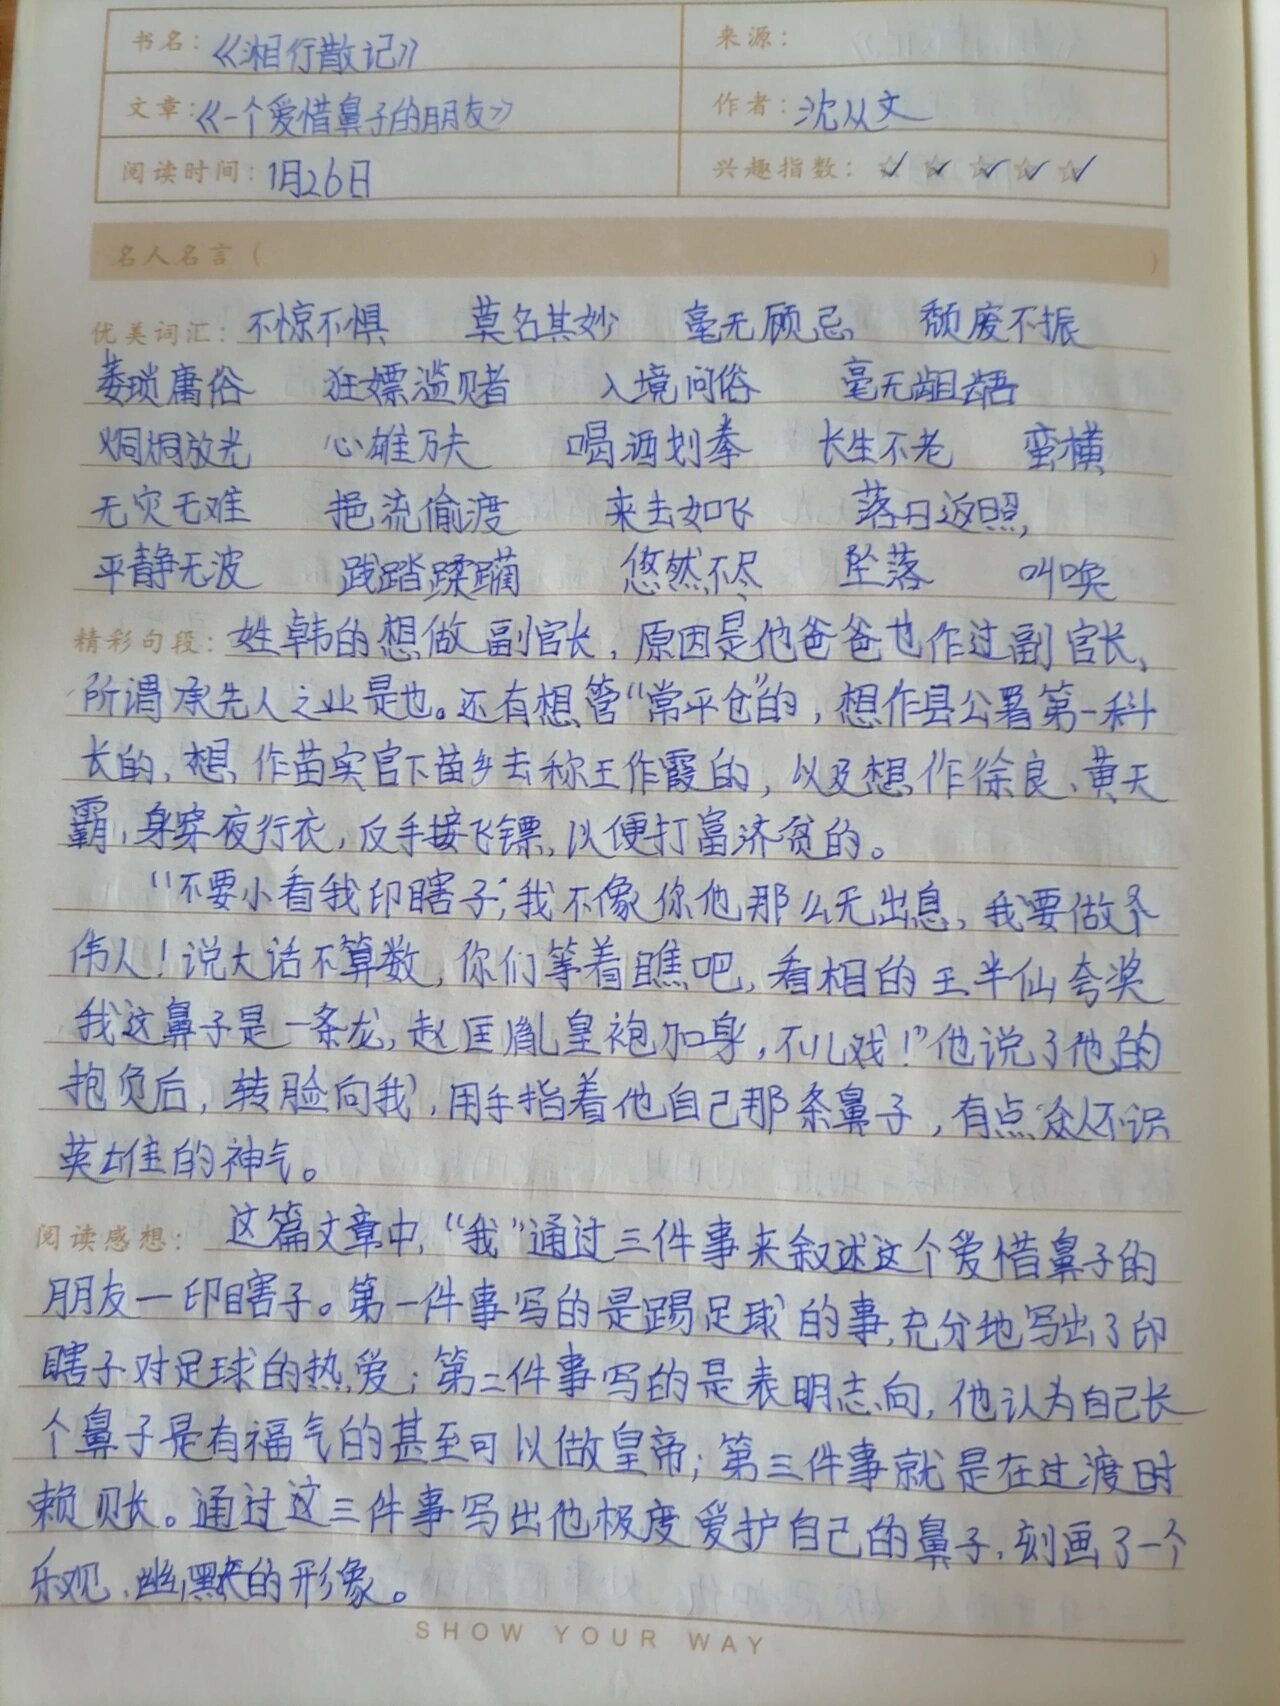 书名：《湘行散记》 来源：
文章：《一个爱惜鼻子的朋友》 作者：沈从文
阅读时间：1月26日 兴趣指数：☆✓ ☆✓ ☆✓ ☆✓ ☆✓
名人名言（ ）
优美词汇：不惊不惧 莫名其妙 毫无顾忌 颓废不振
萎琐庸俗 狂嫖滥赌 入境问俗 毫无龃龉
炯炯放光 心雄万夫 喝酒划拳 长生不老 蛮横
无灾无难 挹流偷渡 来去如飞 落日返照,
平静无波 践踏蹂躏 悠然不尽 坠落 叫唤
精彩句段：姓韩的想做副官长，原因是他爸爸也作过副官长，
所谓承先人之业是也。还有想管“常平仓”的，想作县公署第一科
长的，想作苗实官下苗乡去称王作霸的，以及想作徐良、黄天
霸，身穿夜行衣，反手接飞镖，以便打富济贫的。
“不要小看我印瞎子，我不像你他那么无出息，我要做个
伟人！说大话不算数，你们等着瞧吧，看相的王半仙夸奖
我这鼻子是一条龙，赵匡胤皇袍加身，不儿戏！”他说了他的
抱负后，转脸向我，用手指着他自己那条鼻子，有点众人不识
英雄的神气。
阅读感想：这篇文章中，“我”通过三件事来叙述这个爱惜鼻子的
朋友一印瞎子。第一件事写的是踢足球的事，充分地写出了印
瞎子对足球的热爱；第二件事写的是表明志向，他认为自己长
个鼻子是有福气的甚至可以做皇帝；第三件事就是在过渡时
赖账。通过这三件事写出他极度爱护自己的鼻子，刻画了一个
乐观、幽默的形象。
SHOW YOUR WAY